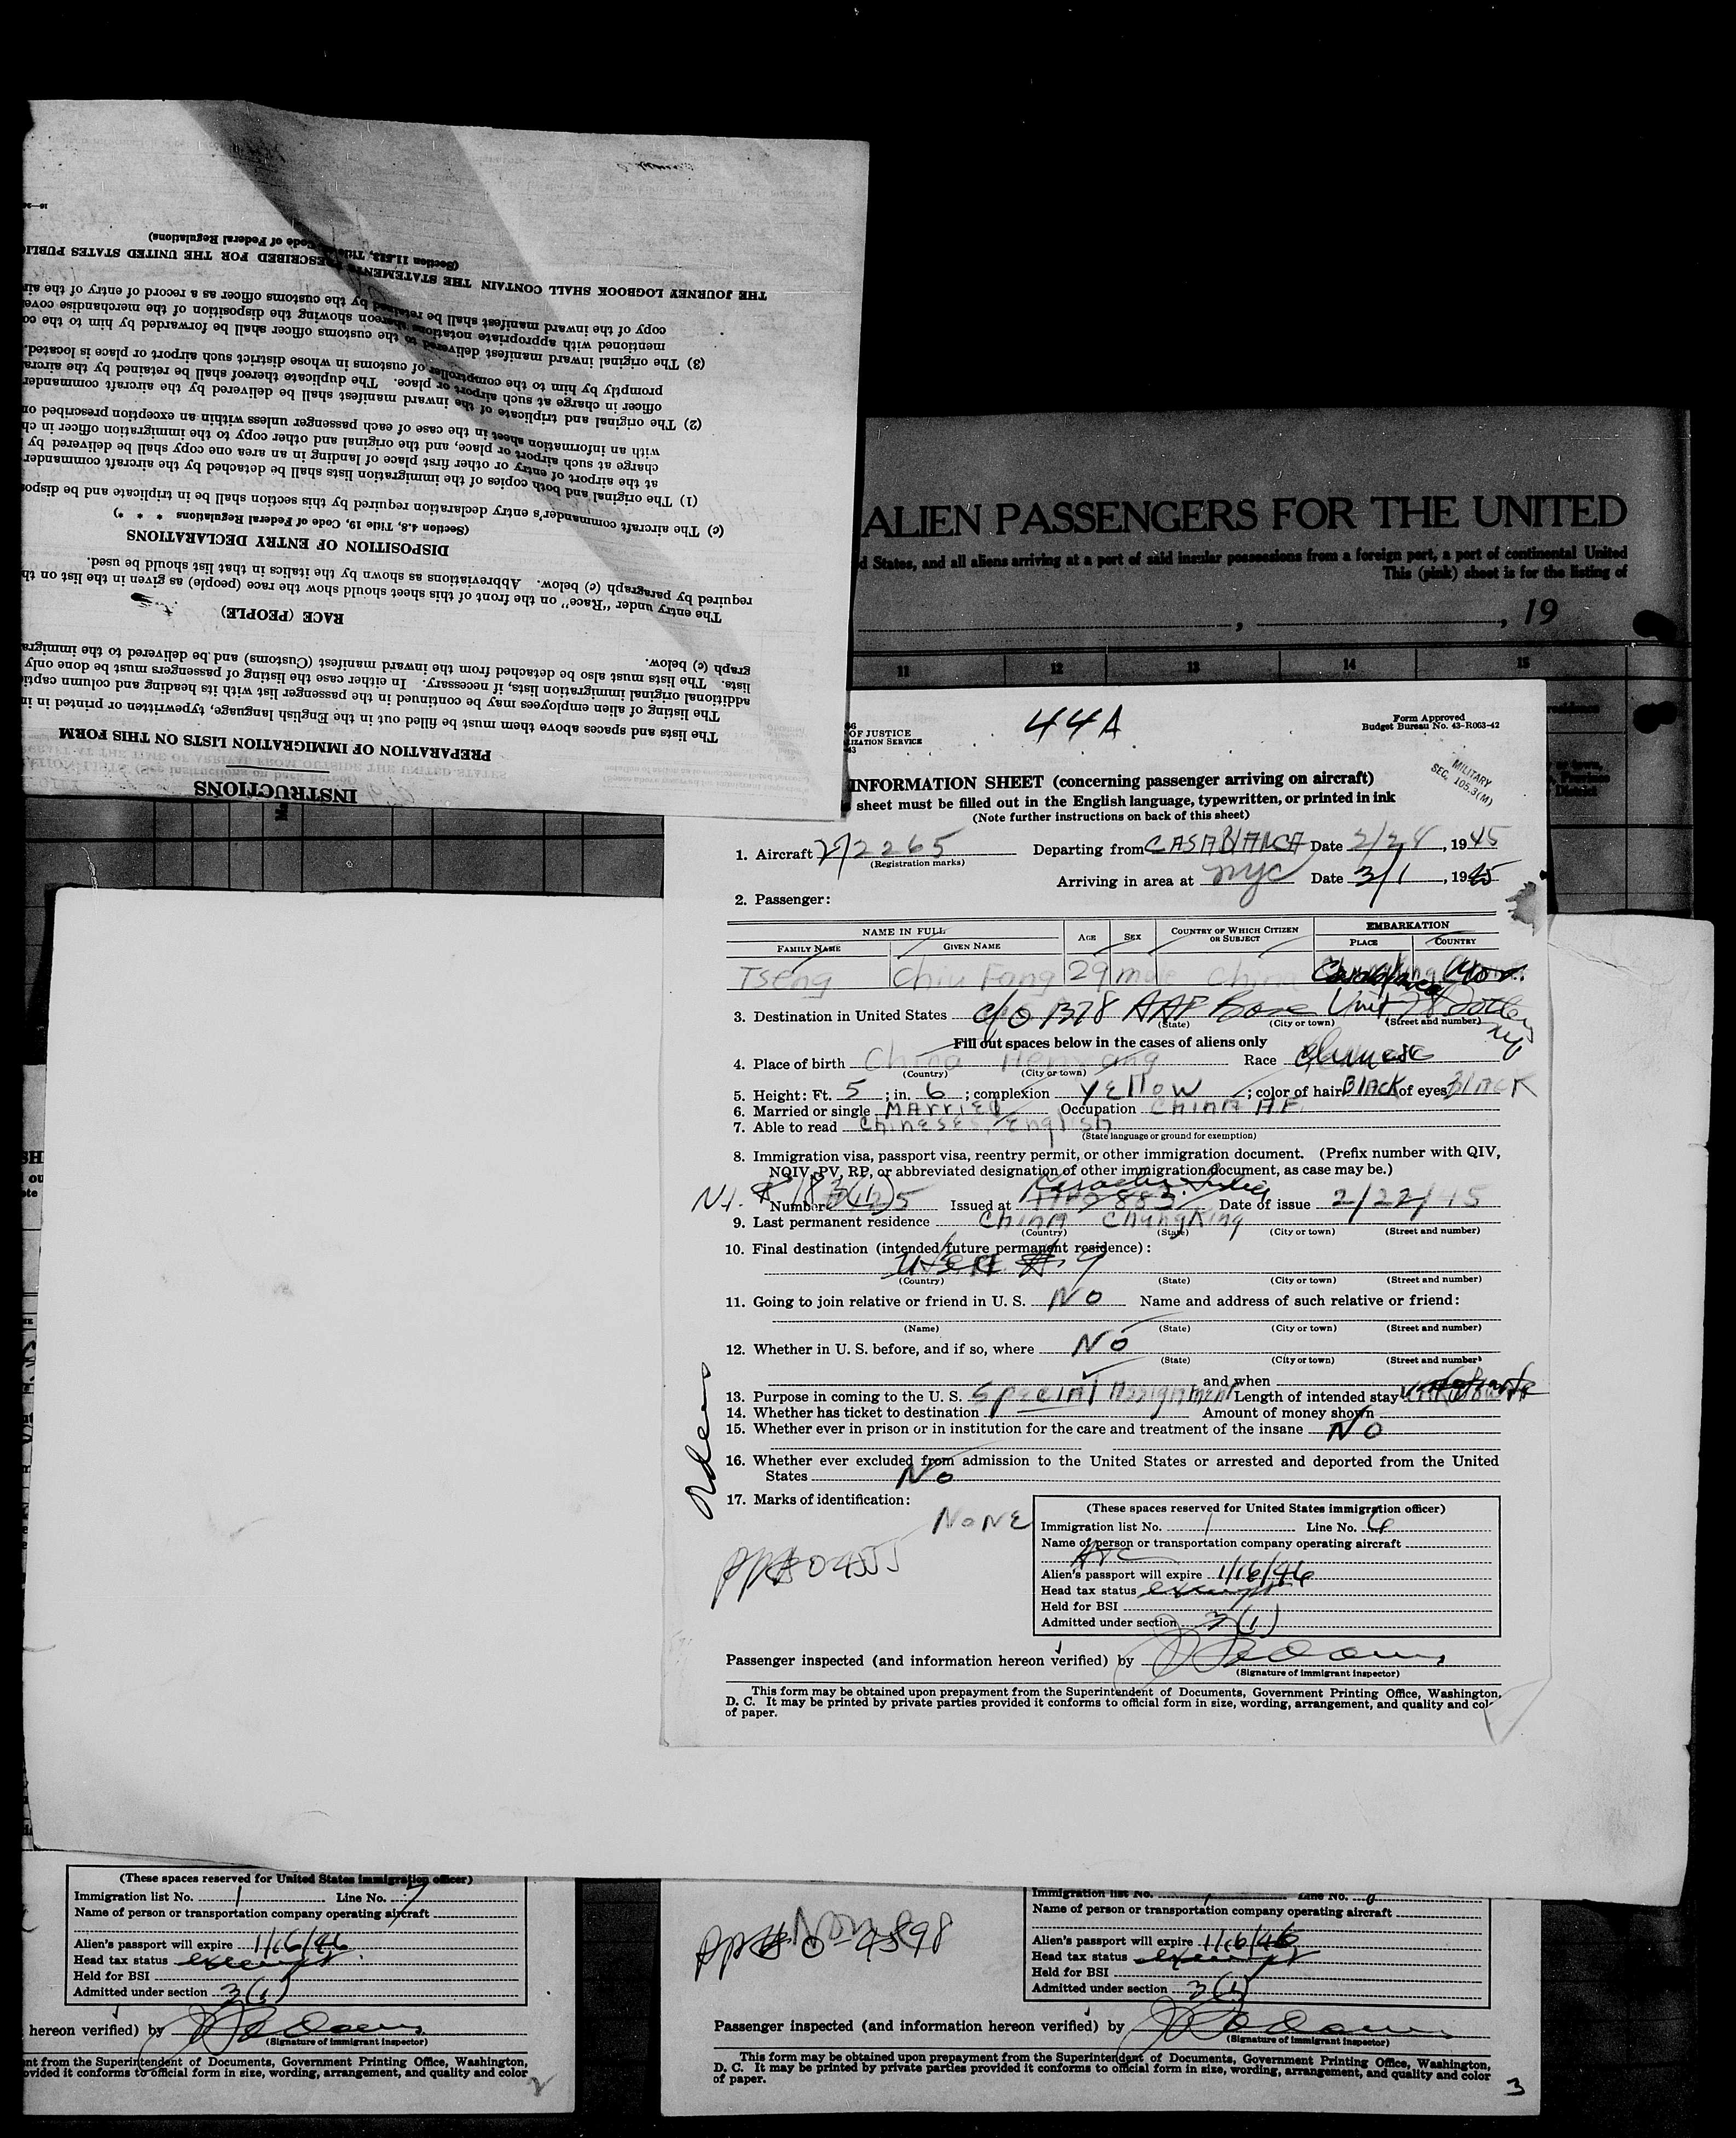 INSTRUCTIONS
PREPARATION OF IMMIGRATION LISTS ON THIS FORM
The lists and spaces above them must be filled out in the English language, typewritten or printed in
The listing of alien employees may be continued in the passenger list with its heading and column
additional original immigration lists, if necessary. In either case the listing of passengers must be done only
lists. The lists must also be detached from the inward manifest (Customs) and be delivered to the
graph (c) below.
RACE (PEOPLE)
The entry under "Race" on the front of this sheet should show the race (people) as given in the list on
required by paragraph (c) below. Abbreviations as shown by the italics in that list should be used.
DISPOSITION OF ENTRY DECLARATIONS
(Section 4.8, Title 19, Code of Federal Regulations * * *)
(c) The aircraft commander's entry declaration required by this section shall be in triplicate and be
(1) The original and both copies of the immigration lists shall be detached by the aircraft commander
at the airport of entry or other first place of landing in an area one copy shall be delivered by
charge at such airport or place, and the original and other copy to the immigration officer in
with an information sheet in the case of each passenger unless within an exception prescribed
(2) The original and triplicate of the inward manifest shall be delivered by the aircraft commander
officer in charge at such airport or place. The duplicate thereof shall be retained by the
promptly by him to the comptroller of customs in whose district such airport or place is located.
(3) The original inward manifest delivered to the customs officer shall be forwarded by him to the
mentioned with appropriate notations thereon showing the disposition of the merchandise
copy of the inward manifest shall be retained by the customs officer as a record of entry of the
THE JOURNEY LOGBOOK SHALL CONTAIN THE STATEMENTS PRESCRIBED FOR THE UNITED STATES
(Section 11.523, Title Code of Federal Regulations)
ALIEN PASSENGERS FOR THE UNITED
d States, and all aliens arriving at a port of said insular possessions from a foreign port, a port of continental United
This (pink) sheet is for the listing of
, , 19
11 12 13 14 15
44A
OF JUSTICE
IZATION SERVICE
Form Approved
Budget Bureau No. 43-R063-42
MILITARY
SEC. 105.3(M)
INFORMATION SHEET (concerning passenger arriving on aircraft)
sheet must be filled out in the English language, typewritten, or printed in ink
(Note further instructions on back of this sheet)
1. Aircraft 272265 Departing from CASABLANCA Date 2/28, 1945
(Registration marks)
Arriving in area at NYC Date 3/1, 1945
2. Passenger:
NAME IN FULL AGE SEX COUNTRY OF WHICH CITIZEN OR SUBJECT EMBARKATION
FAMILY NAME GIVEN NAME PLACE COUNTRY
Tseng Chiu Fang 29 male China
3. Destination in United States c/o 1378 AAF Base Unit
(State) (City or town) (Street and number)
Fill out spaces below in the cases of aliens only
4. Place of birth China Henyang Race Chinese
(Country) (City or town)
5. Height: Ft. 5; in. 6; complexion Yellow; color of hair BLACK of eyes BLACK
6. Married or single Married Occupation CHINA AF
7. Able to read Chineses, English
(State language or ground for exemption)
8. Immigration visa, passport visa, reentry permit, or other immigration document. (Prefix number with QIV,
NQIV, PV, RP, or abbreviated designation of other immigration document, as case may be.)
Number Issued at Date of issue 2/22/45
9. Last permanent residence China Chungking
(Country) (State) (City or town) (Street and number)
10. Final destination (intended future permanent residence):
(Country) (State) (City or town) (Street and number)
11. Going to join relative or friend in U. S. No Name and address of such relative or friend:
(Name) (State) (City or town) (Street and number)
12. Whether in U. S. before, and if so, where No
(State) (City or town) (Street and number)
and when
13. Purpose in coming to the U. S. Special Assignment Length of intended stay
14. Whether has ticket to destination Amount of money shown
15. Whether ever in prison or in institution for the care and treatment of the insane No
16. Whether ever excluded from admission to the United States or arrested and deported from the United
States No
17. Marks of identification:
NONE
(These spaces reserved for United States immigration officer)
Immigration list No. 1 Line No. 6
Name of person or transportation company operating aircraft
ATC
Alien's passport will expire 1/16/46
Head tax status exempt
Held for BSI
Admitted under section 3(1)
Passenger inspected (and information hereon verified) by
(Signature of immigrant inspector)
This form may be obtained upon prepayment from the Superintendent of Documents, Government Printing Office, Washington,
D. C. It may be printed by private parties provided it conforms to official form in size, wording, arrangement, and quality and
of paper.
(These spaces reserved for United States immigration officer)
Immigration list No. 1 Line No. 7
Name of person or transportation company operating aircraft
Alien's passport will expire 1/16/46
Head tax status exempt
Held for BSI
Admitted under section 3(1)
hereon verified) by
(Signature of immigrant inspector)
nt from the Superintendent of Documents, Government Printing Office, Washington,
ovided it conforms to official form in size, wording, arrangement, and quality and color
2
Immigration list No. Line No.
Name of person or transportation company operating aircraft
Alien's passport will expire 1/16/46
Head tax status exempt
Held for BSI
Admitted under section 3(1)
Passenger inspected (and information hereon verified) by
(Signature of immigrant inspector)
This form may be obtained upon prepayment from the Superintendent of Documents, Government Printing Office, Washington,
D. C. It may be printed by private parties provided it conforms to official form in size, wording, arrangement, and quality and color
of paper.
3